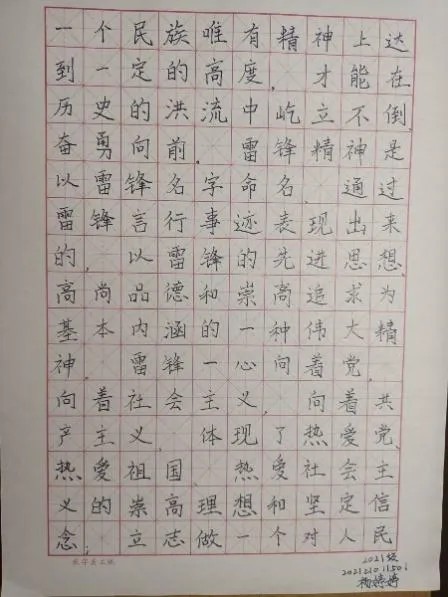 一个民族唯有精神上达
到一定的高度，才能在
历史的洪流中屹立不倒，
奋勇向前。雷锋精神是
以雷锋名字命名，通过
雷锋言行事迹表现出来
的，以雷锋的先进思想、
高尚品德和崇高追求为
基本内涵的一种伟大精
神。雷锋一心向着党，
向着社会主义，向着共
产主义，体现了热爱党、
热爱祖国、热爱社会主
义的崇高理想和坚定信
念；立志做一个对人民
2021级
杨婷婷